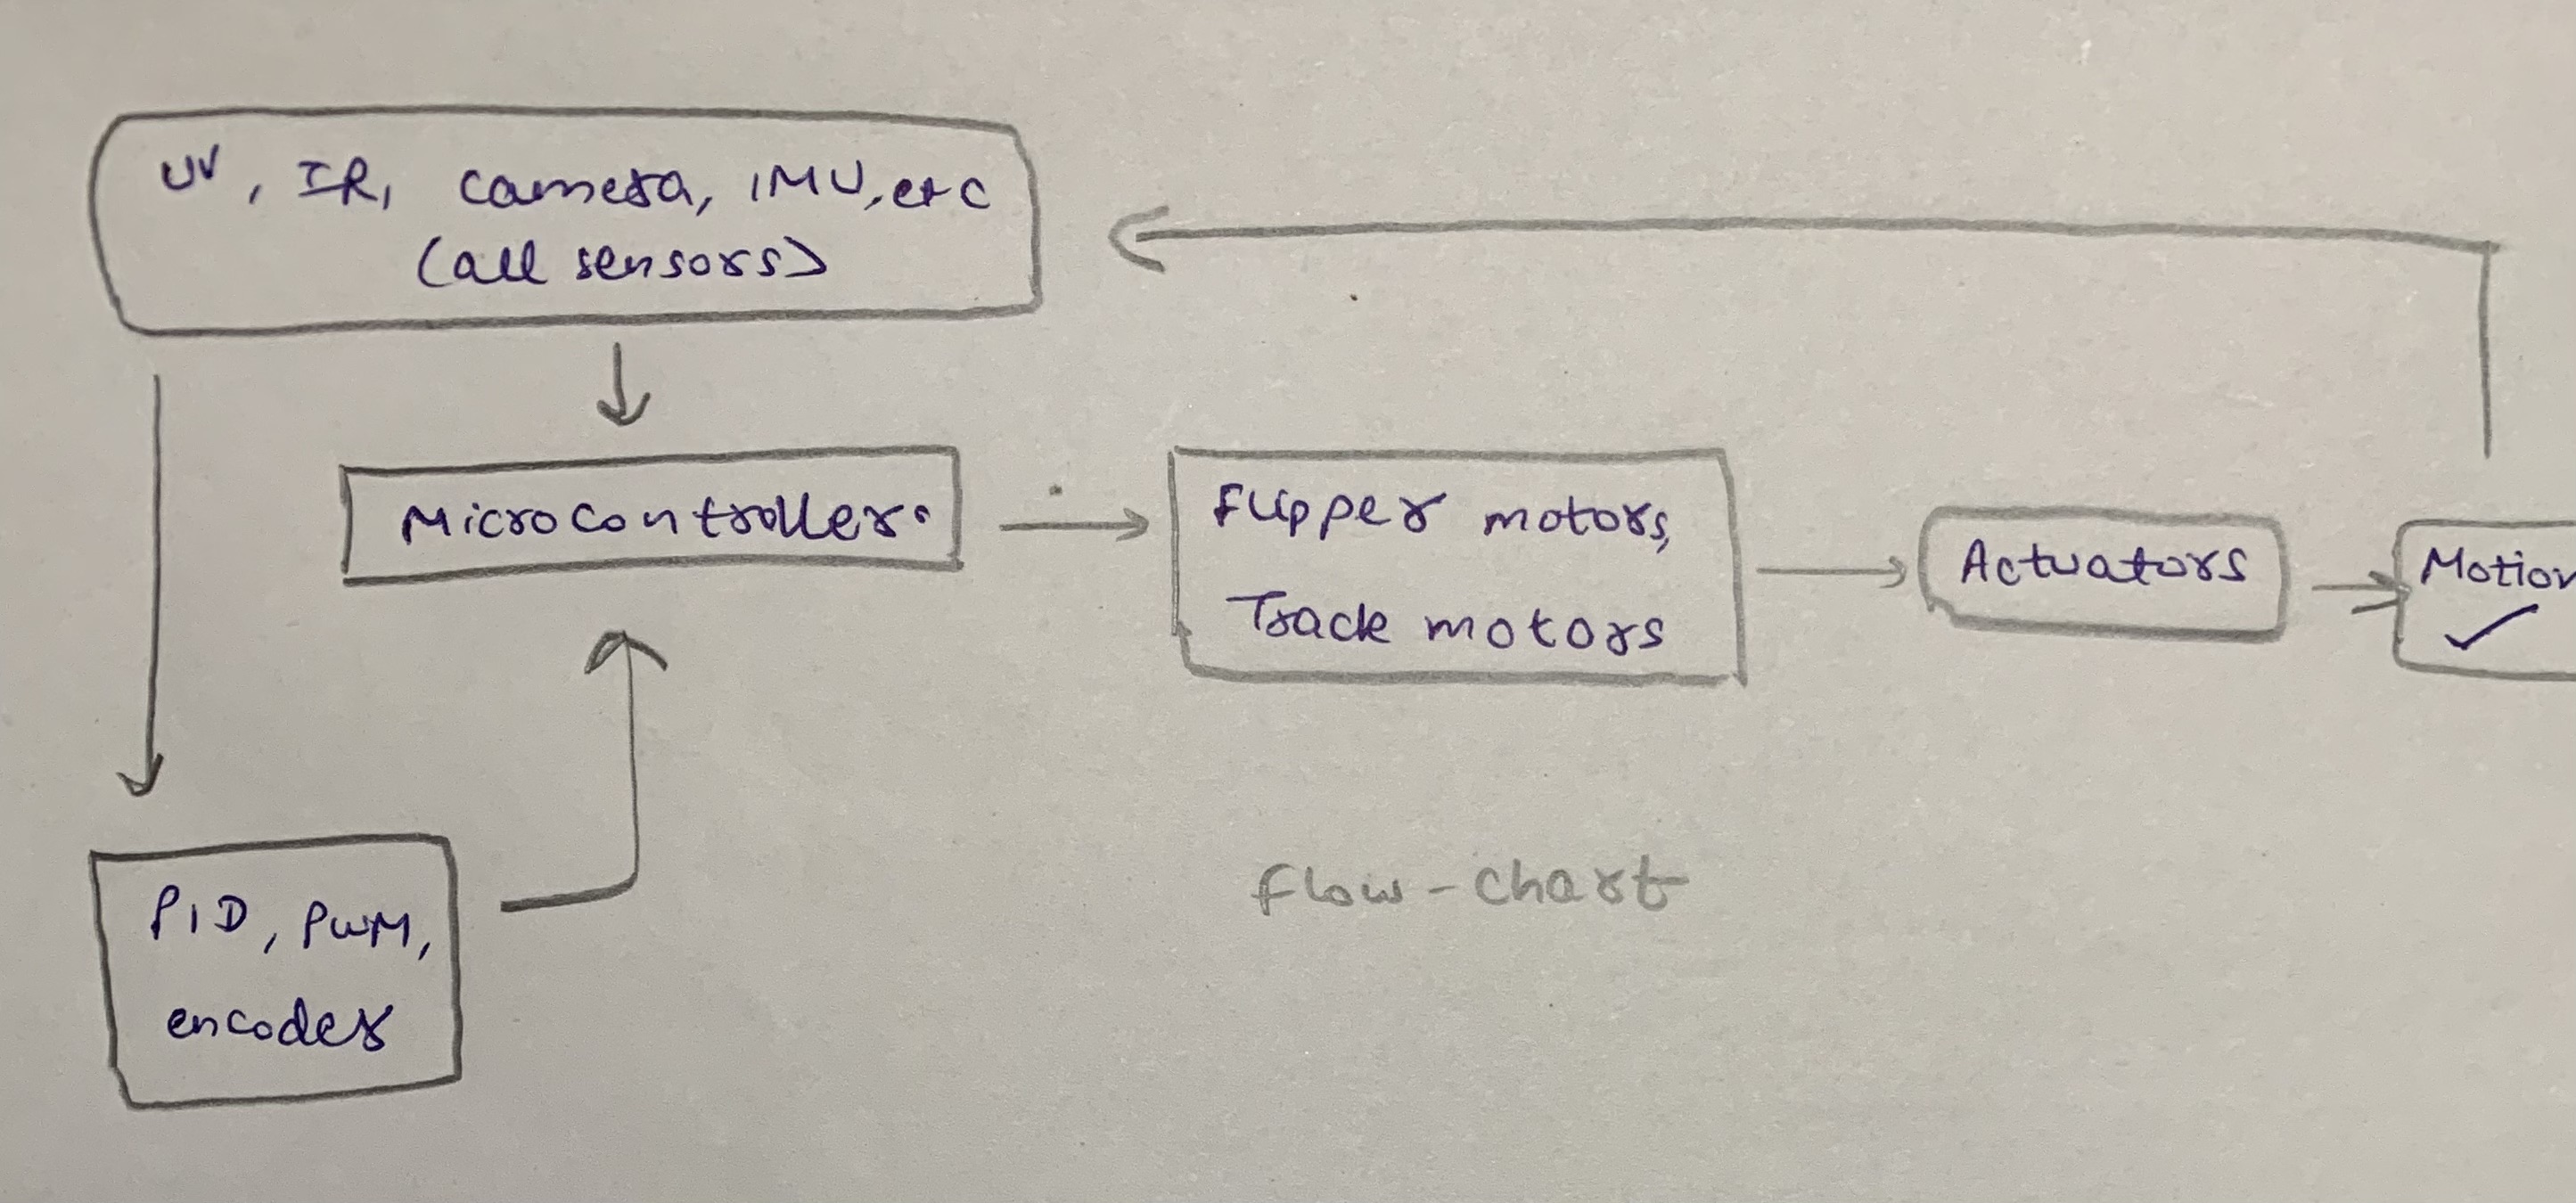 UV, IR, camera, IMU, etc
(all sensors)
Microcontroller.
Flipper motors,
Track motors
Actuators
Motion
PID, PWM,
encoder
flow-chart